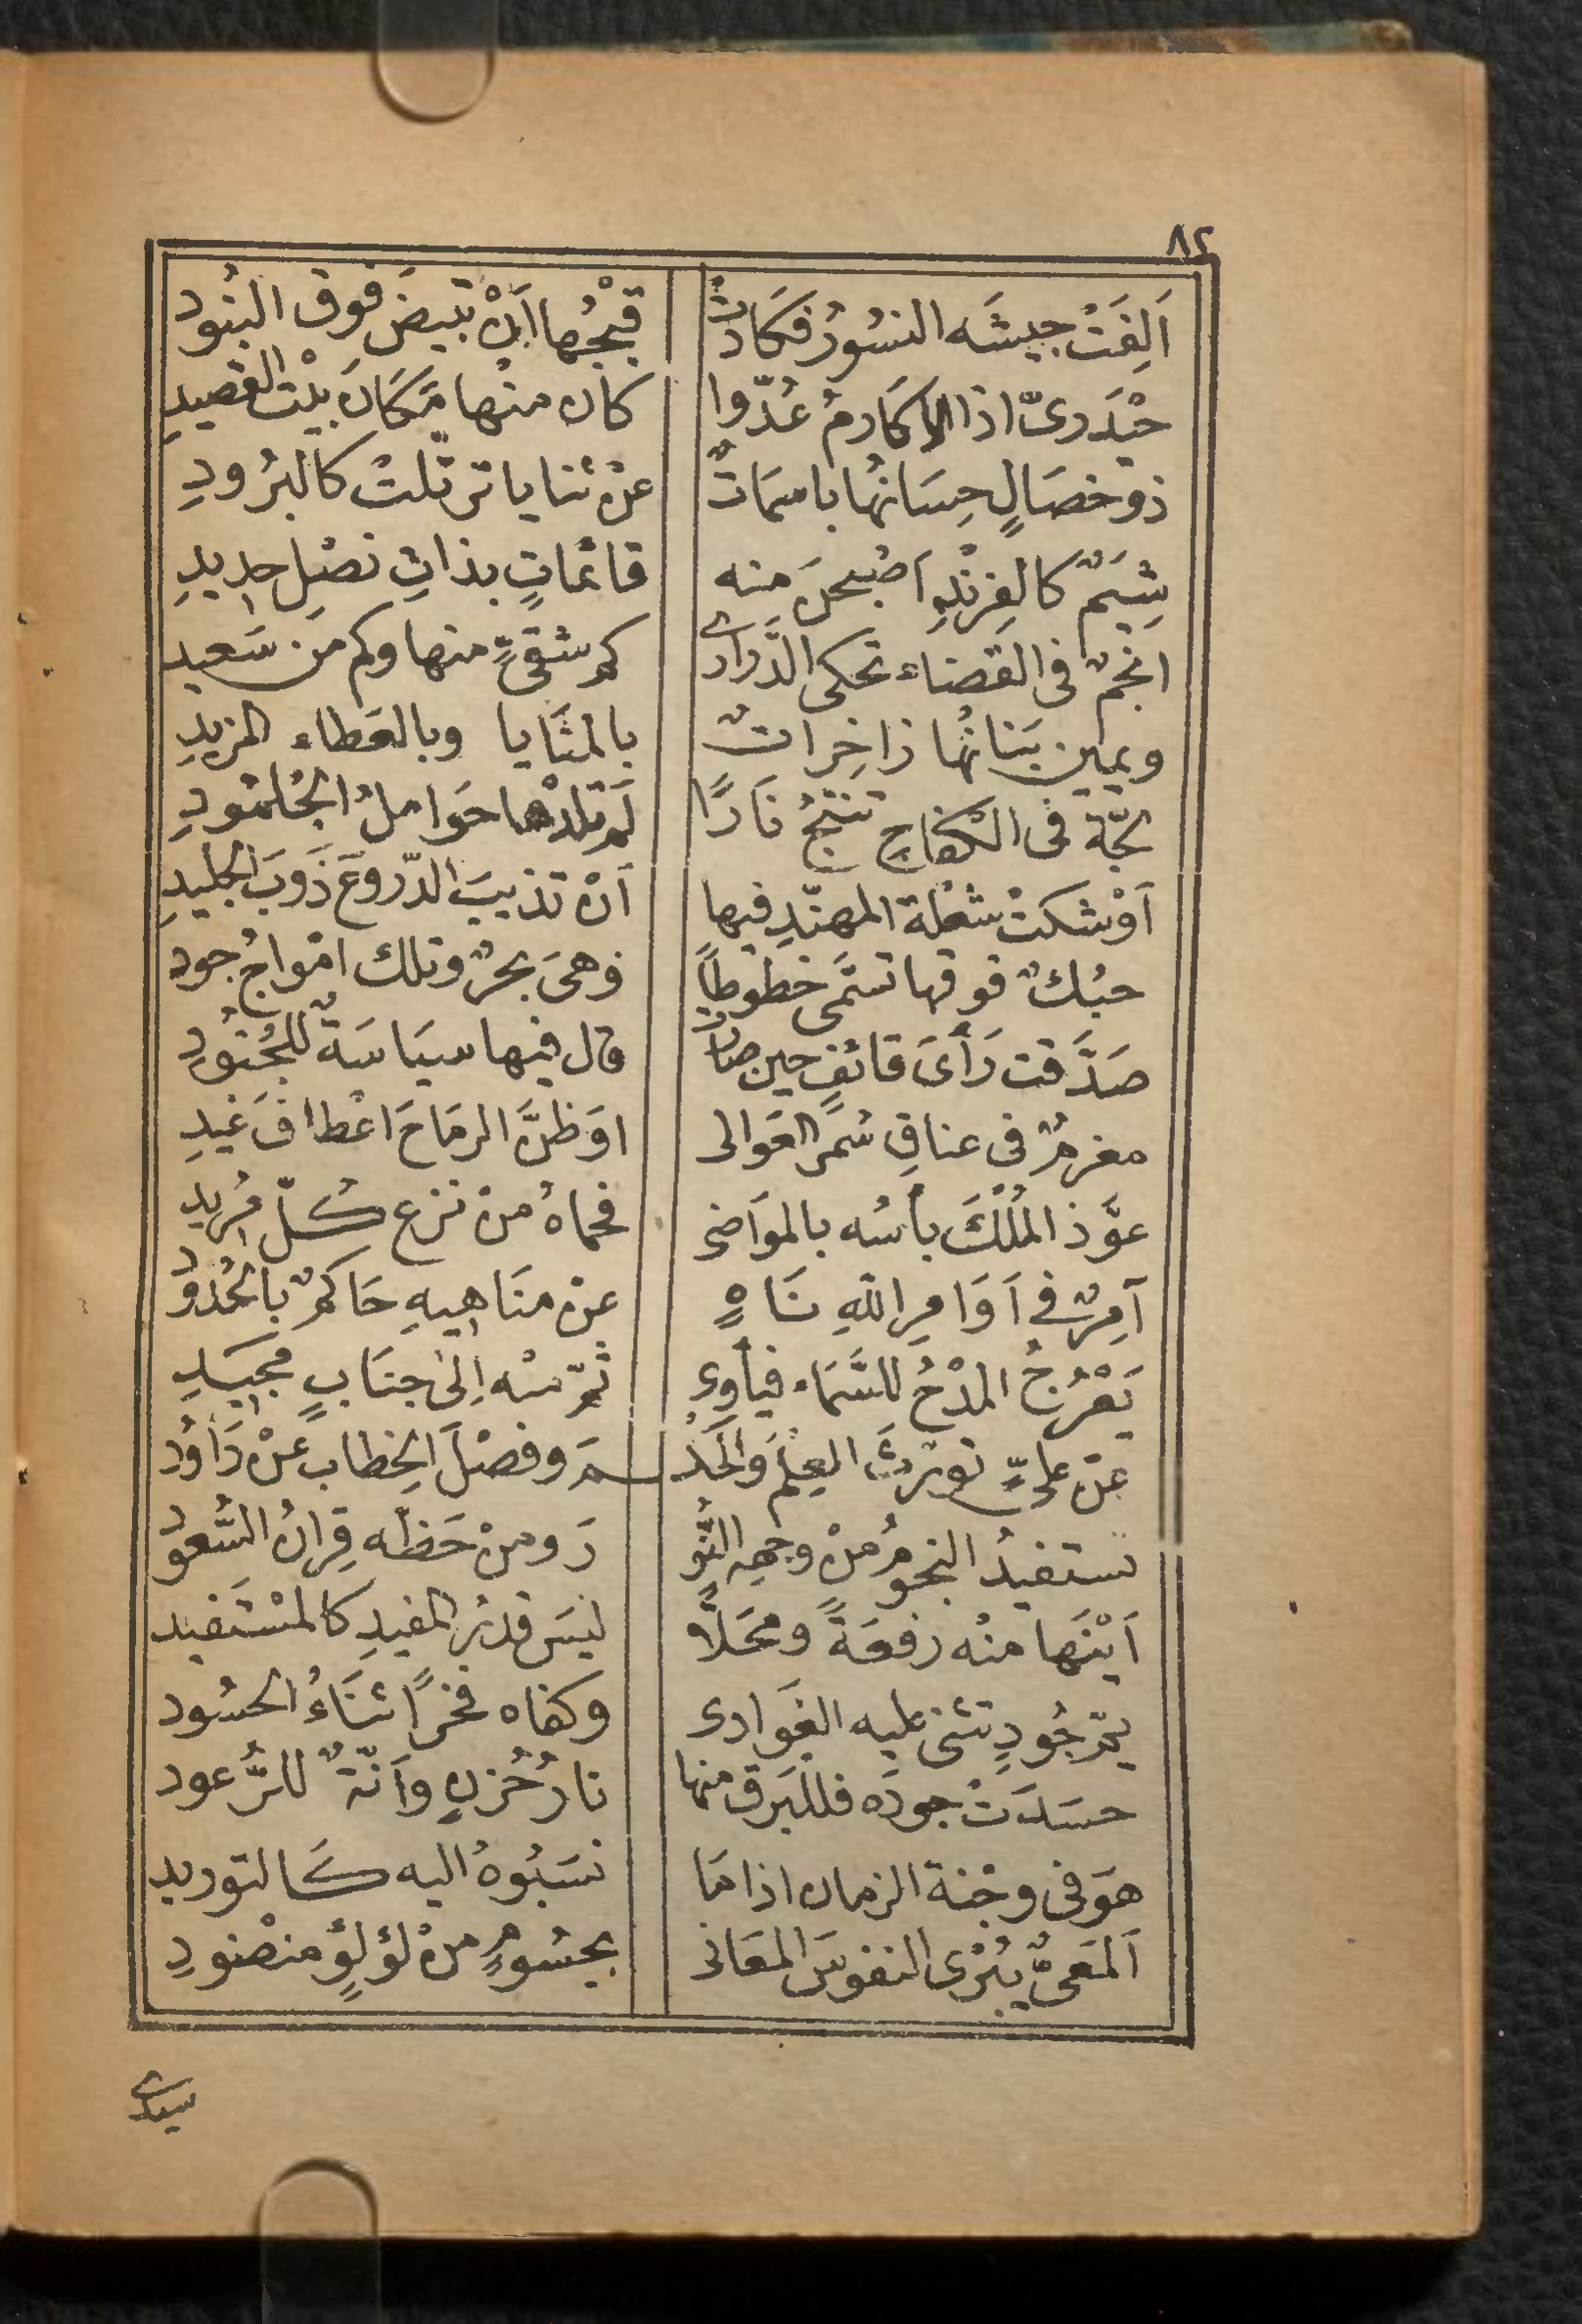 ٨٢
اَلِفَتْ جيشَه النسُورُ فكَادتْ قبْجُها اَنْ تبيضَ فوق البنُود
حيْدَرىّ اذا الاكَارمُ عُدّوا كان منْها مَكَانَ بيْت القصيدِ
ذو خصَالٍ حِسَانُها باسمَاتٌ عنْ ثنايا ترتّلتْ كالبرُودِ
شِيَمٌ كالفِرِنْدِ اَصْبحنَ منه قائمَاتٍ بذاتِ نصْلٍ حديدِ
انجمٌ فى القضاء تحكى الدَّرارى كم شقىٍّ منها وكم من سَعيد
ويمين بَنانُها زاخِراتٌ بالمنَايا وبالعَطاء المزيدِ
لجّة فى الكفاح تنتجُ نَارًا لَم تلدْها حَوامِلُ الجُلمُودِ
اَوْشكتْ شعْلة المهنّدِ فيها اَنْ تذيبَ الدّروعَ ذَوبَ الجليدِ
حبُكٌ فوقها تسَمَّى خطوطًا وَهىَ بحرٌ وتلك امْواجُ جود
صَدَّقت رَأىَ قائفٍ حين صَارَ قال فيها سيَاسَةٌ للجُنُودِ
مغرمٌ فى عناقِ سُمْر العَوالى اوَ ظنَّ الرمَاحَ اعْطافَ غيدِ
عوَّذ المُلْكَ بأسُه بالموَاضى فحماهُ منْ نزع كُلّ مُريدِ
آمِرٌ فے اَوَامِرِ اللهِ نَاهٍ عنْ منَاهِيهِ حَاكمٌ بالحُدُود
يَعْرُجُ المدْحُ للسَّمَاء فيأوى ثمّ منْه اِلىٰ جنَابٍ مجيَدِ
عنْ علىٍّ تورثَ العِلْمَ والحُكْـ ـمَ وفصْلَ الخِطاب عنْ دَاودُ
تستفيدُ النجومُ منْ وجهه النُّو رَ ومنْ حَظّه قِرانُ السُّعود
اَيْنَها منْه رفعَةً ومحَلاًّ ليسَ قدرُ المفيدِ كالمسْتَفيد
يمّ جُودٍ تثنى عليه الغَوادى وكفاه فخرًا ثنَاءُ الحسُود
حسَدَتْ جودَه فللبَرق منها نارُ حُزنٍ وَاَنّةٌ للرُّعود
هوَ فى وجْنة الزمان اذا مَا نسَبُوهُ اليه كَالتوريد
اَلمعىٌّ يُبْرى النفوسَ المعَانى بجسُومٍ منْ لؤلؤٍ منضُودِ
سيدے